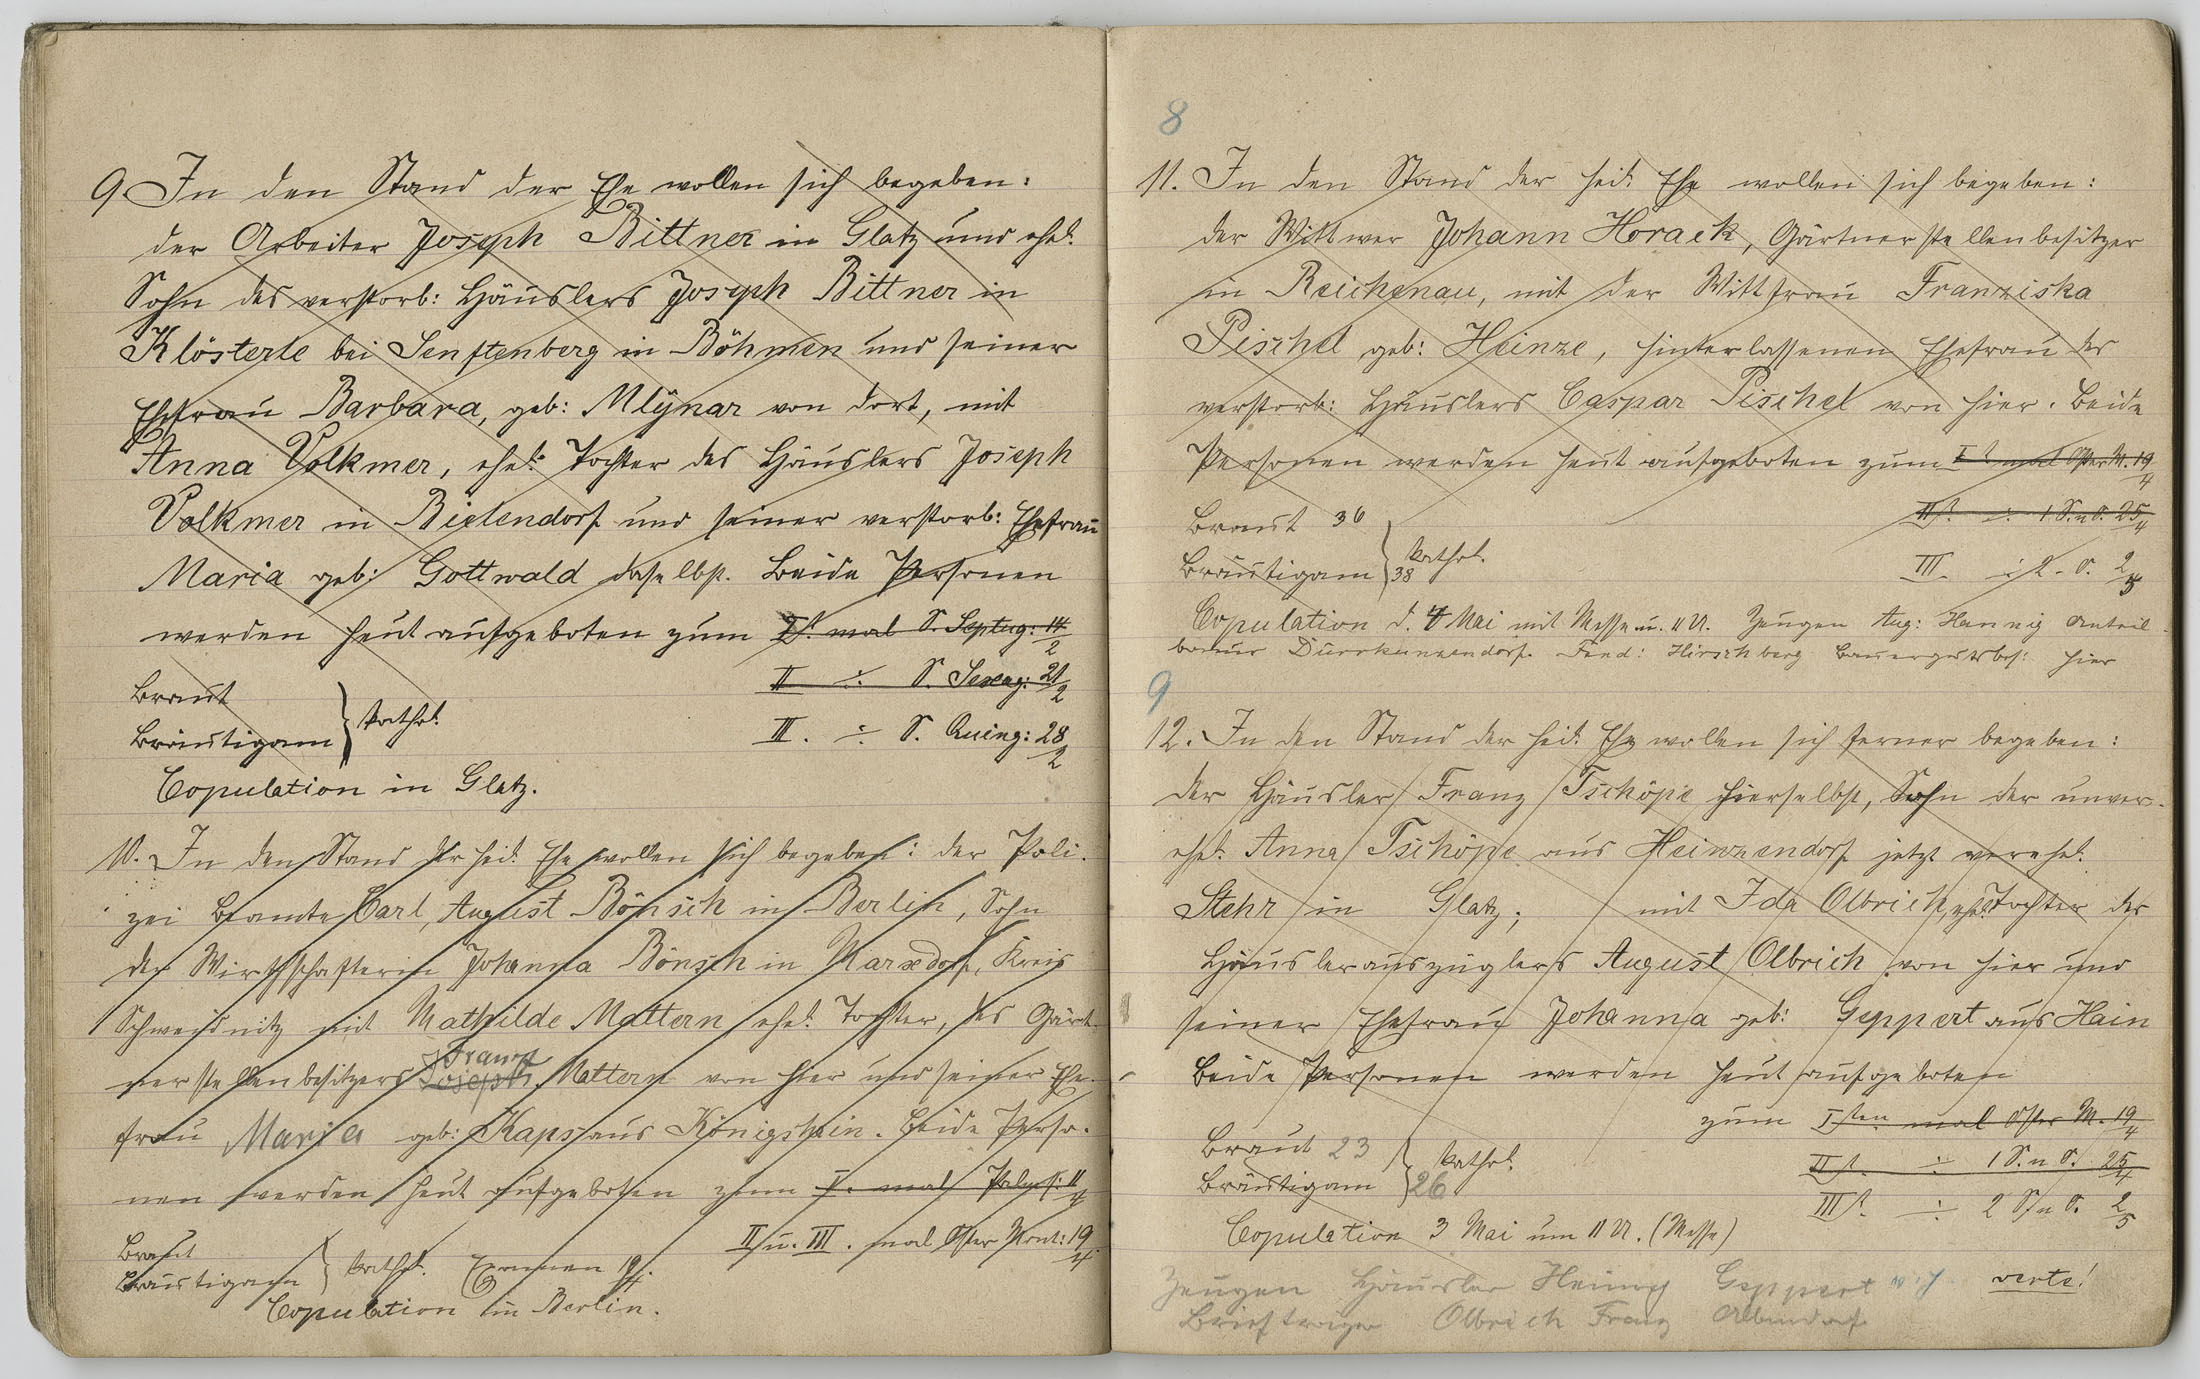 9. In den Stand der Ehe wollen sich begeben:
der Arbeiter Joseph Bittner in Glatz und ehel.
Sohn des verstorb: Häuslers Joseph Bittner in
Klösterle bei Senftenberg in Böhmen und seiner
Ehefrau Barbara, geb: Mlÿnar von dort, mit
Anna Volkmer, ehel: Tochter des Häuslers Joseph
Volkmer in Bielendorf und seiner verstorb: Ehefrau
Maria geb: Gottwald daselbst. Beide Personen
werden heut aufgeboten zum I t. mal S. Septug: 14/2
II ÷ S. Sexag: 21/2
Braut
Bräutigam } kathol.
III. ÷ S. Quing: 28/2
Copulation in Glatz.
10. In den Stand der heil. Ehe wollen sich begeben: der Poli-
zei Beamte Carl, August Bönsch in Berlin, Sohn
der Wirthschafterin Johanna Bönsch in Marxdorf, Kreis
Schweidnitz mit Mathilde Mattern ehel. Tochter, des Gärt-
Franz
nerstellenbesitzers Joseph Mattern von hier und seiner Ehe-
frau Maria geb: Kaps aus Königshain. Beide Perso-
nen werden heut aufgeboten zum I. mal Palms: 11/4
II u. III. mal Oster Mont: 19/4.
Braut
Bräutigam } kathol. Examen 19/4.
Copulation in Berlin.
8
11. In den Stand der heil. Ehe wollen sich begeben:
der Wittwer Johann Horack, Gärtnerstellenbesitzer
in Reichenau, mit der Wittfrau Franziska
Pischel geb: Heinze, hinterlassenen Ehefrau des
verstorb: Häuslers Caspar Pischel von hier. Beide
Personen werden heut aufgeboten zum I t mal Oster M. 19/4
II t. ÷ 1 S. n O. 25/4
Braut 36
Bräutigam } 38 kathol.
III. ÷ 2 - O. 2/5
Copulation d. 4 Mai mit Messe um 11 U. Zeugen Aug: Hannig
Dürrkunzendorf. Ferd: Hirschberg Bauergutsbes: hier
9
12. In den Stand der heil. Ehe wollen sich ferner begeben:
der Häusler Franz Tschöpe hierselbst, Sohn der unver-
ehel. Anna Tschöpe aus Heinzendorf jetzt verehel.
Stehr in Glatz; mit Ida Olbrich, ehel. Tochter des
Häuslerauszüglers August Olbrich von hier und
seiner Ehefrau Johanna geb: Geppert aus Hain
Beide Personen werden heut aufgeboten
zum I ten mal Oster M. 19/4
Braut 23
Bräutigam } 26 kathol.
II t. ÷ 1 S. n O. 25/4
III t. ÷ 2 S n O. 2/5
Copulation 3 Mai um 11 U. (Messe)
Zeugen Häusler Geppert
verte!
Briefträger Olbrich Franz Albendorf